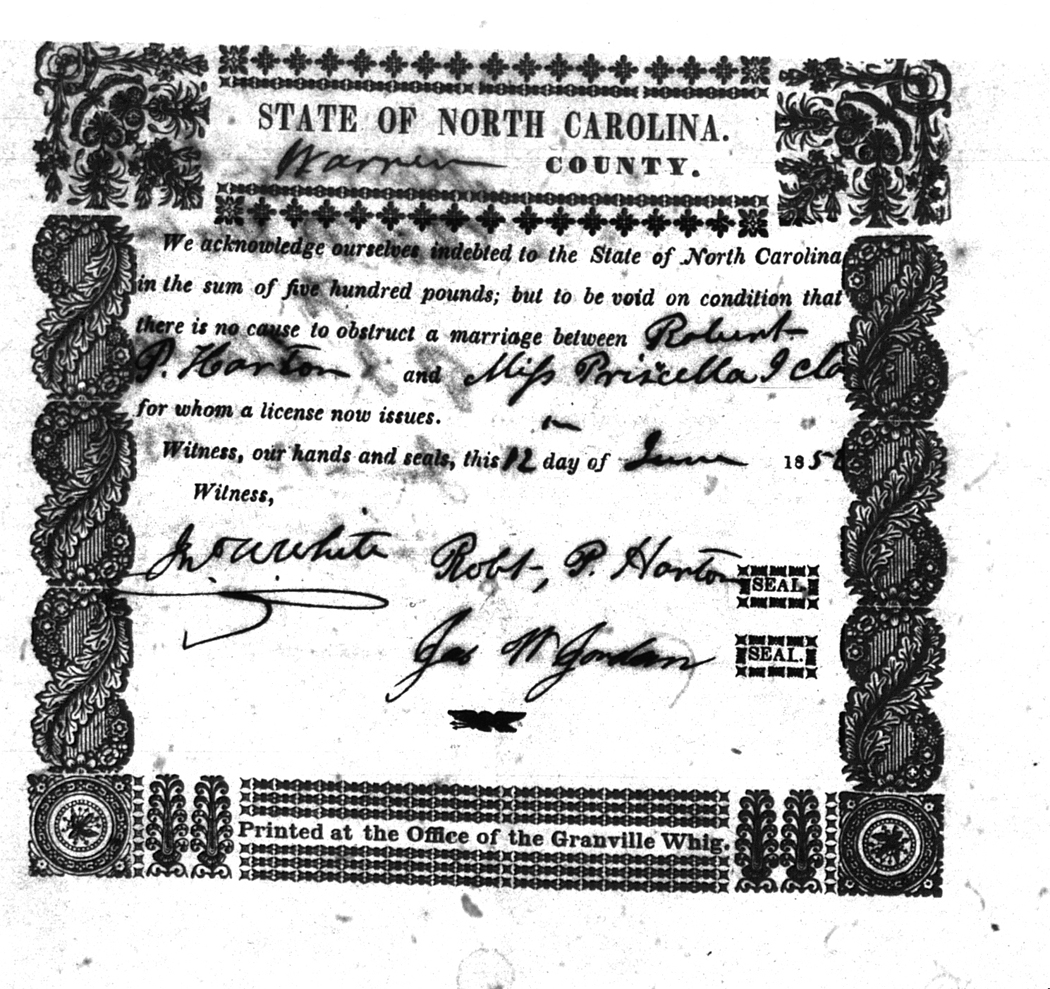 STATE OF NORTH CAROLINA.
Warren COUNTY.
We acknowledge ourselves indebted to the State of North Carolina
in the sum of five hundred pounds; but to be void on condition that
there is no cause to obstruct a marriage between Robert
P. Harton and Miss Priscella
for whom a license now issues.
Witness, our hands and seals, this 12 day of June 185
Witness,
Jno W White Robt, P. Harton SEAL.
Jas W Jordan SEAL.
Printed at the Office of the Granville Whig.